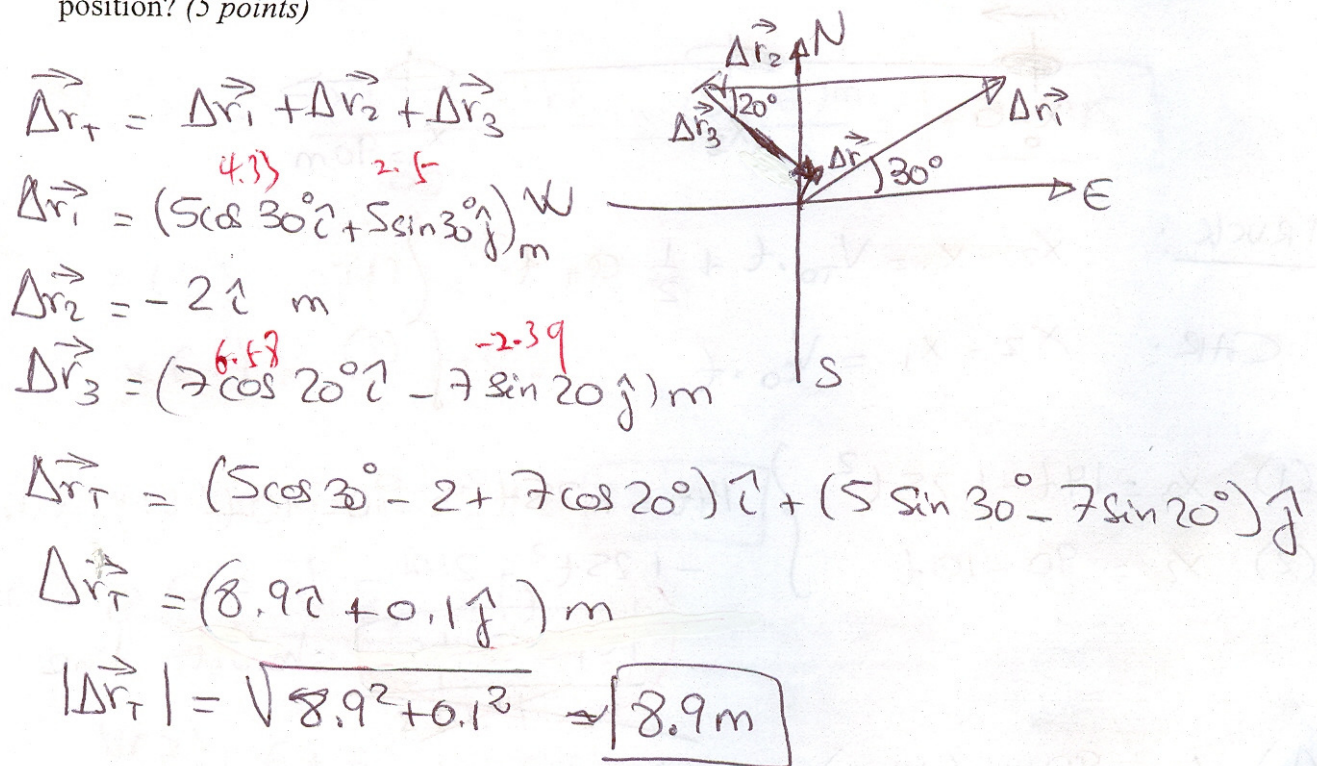 position? (5 points)
Δr⃗_T = Δr⃗₁ + Δr⃗₂ + Δr⃗₃
4.33 2.5
Δr⃗₁ = (5cos 30° î + 5sin 30° ĵ) m
Δr⃗₂ = -2 î m
6.58 -2.39
Δr⃗₃ = (7 cos 20° î - 7 sin 20 ĵ) m
Δr⃗_T = (5 cos 30° - 2 + 7 cos 20°) î + (5 sin 30° - 7 sin 20°) ĵ
Δr⃗_T = (8.9 î + 0.1 ĵ) m
|Δr⃗_T| = √(8.9² + 0.1²) ≈ 8.9 m
Δr⃗₂ N
20°
Δr⃗₁
Δr⃗₃
Δr⃗
30°
W
E
S